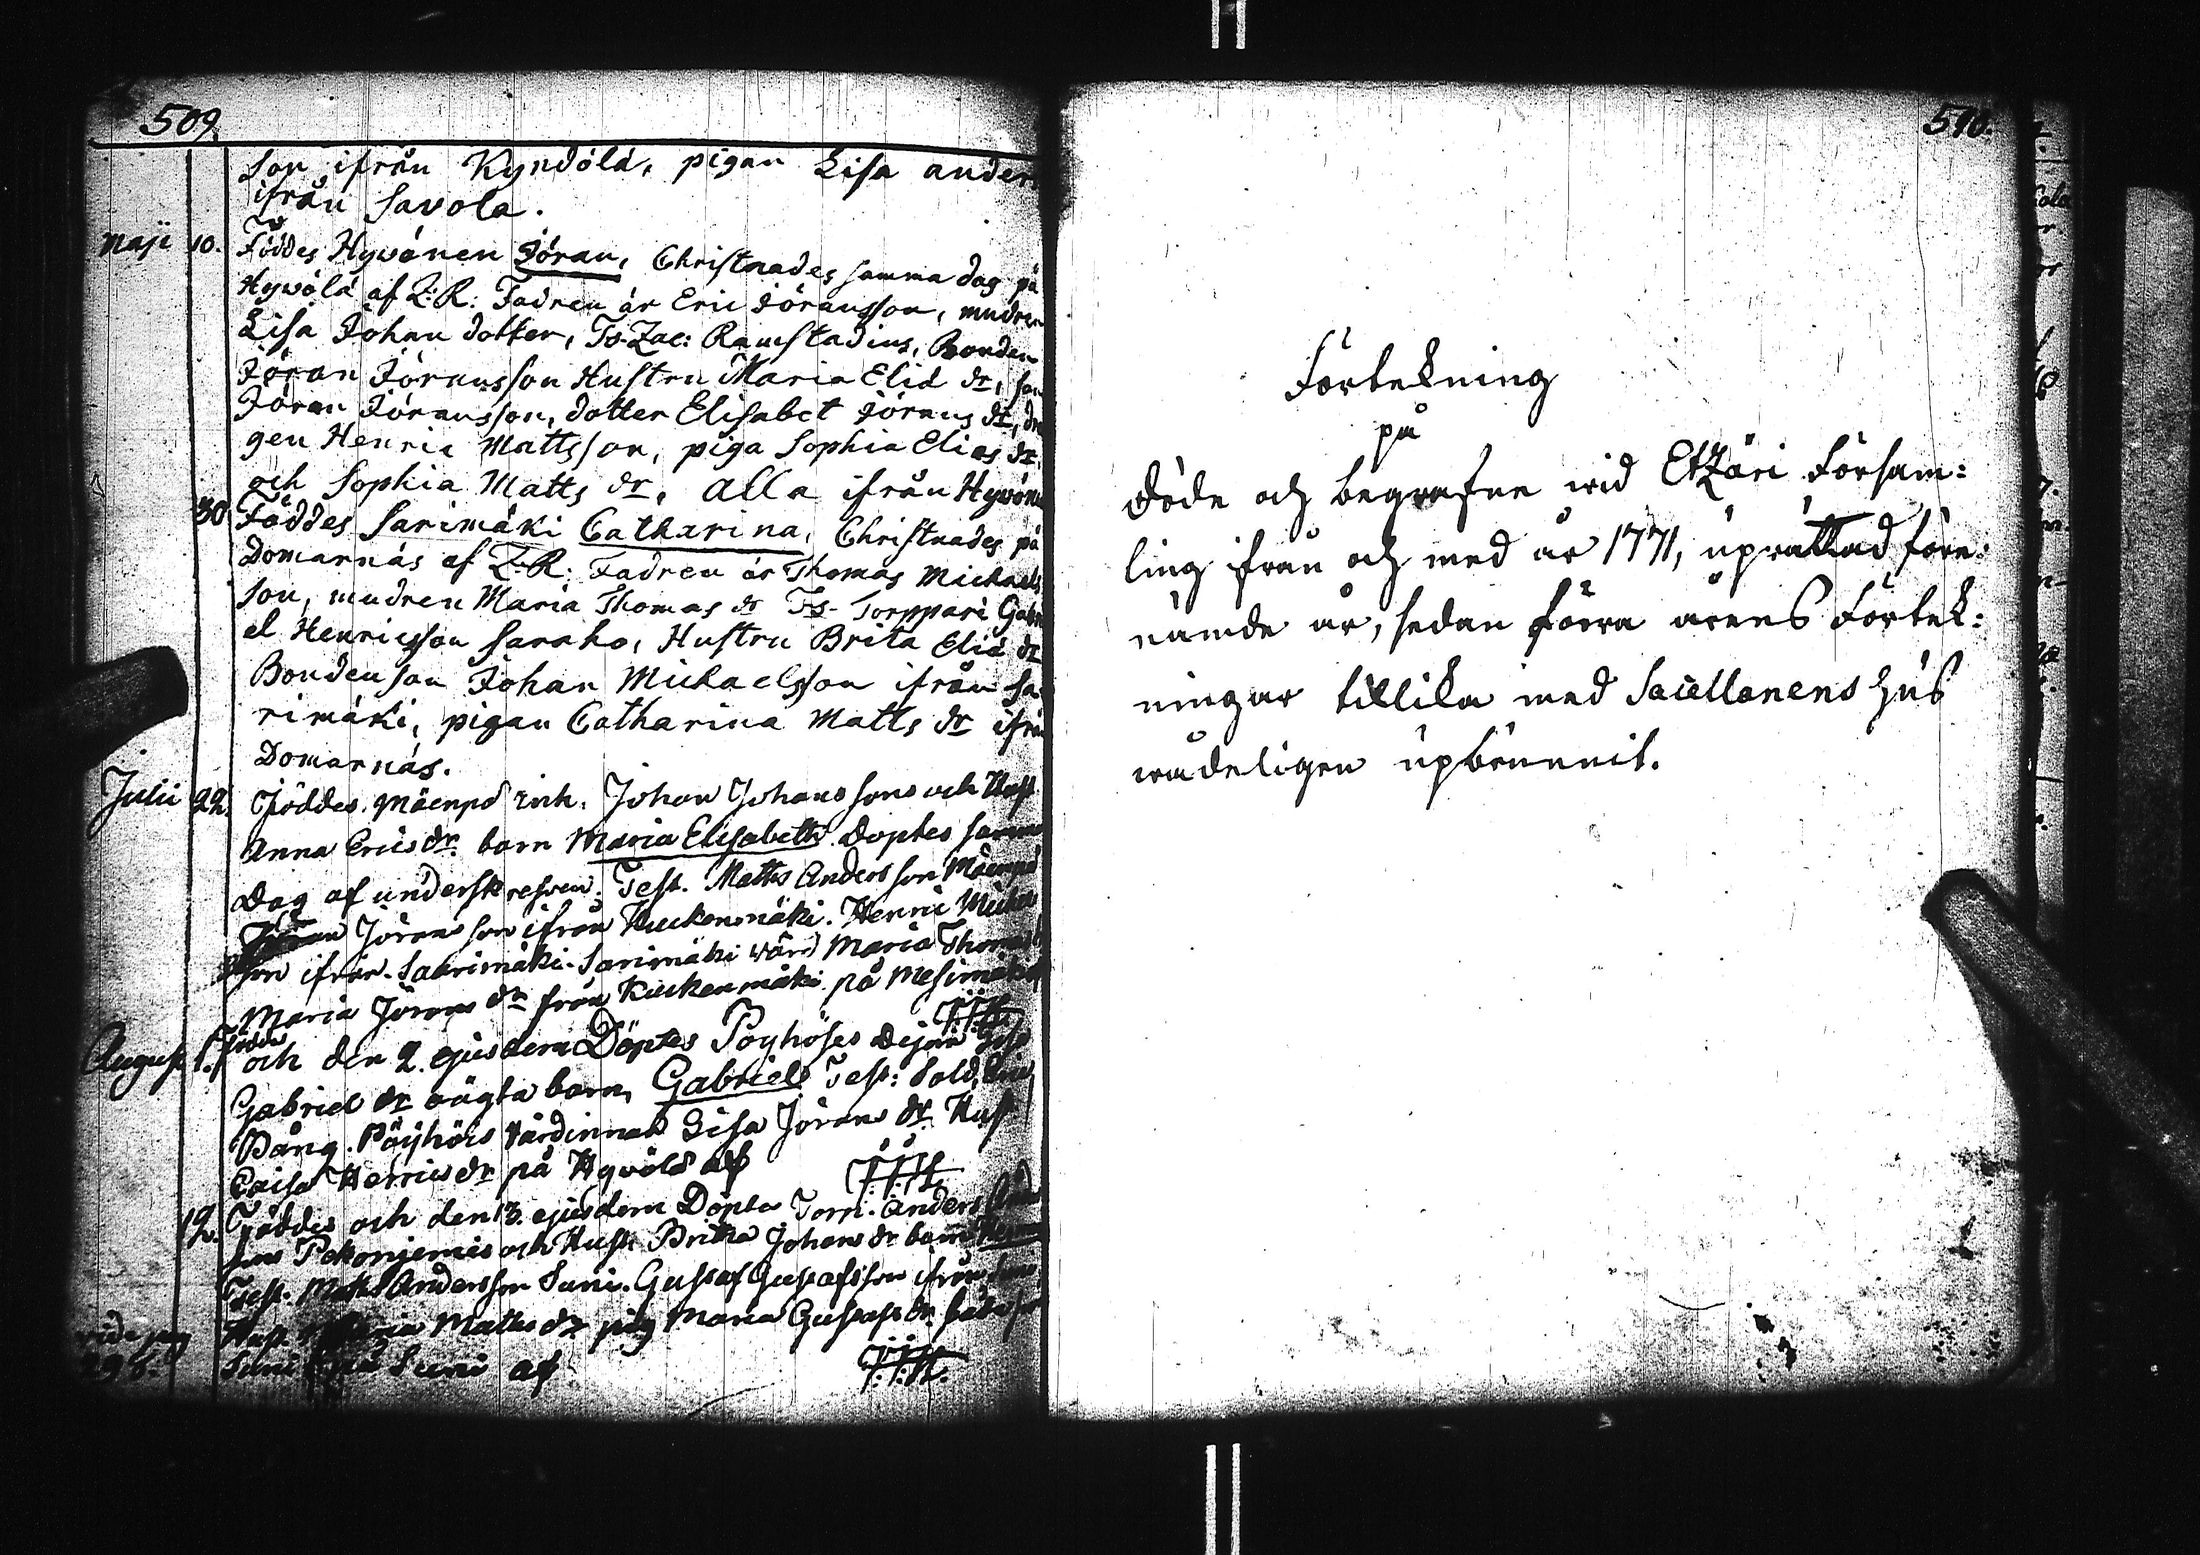 509.
son ifrån Kyndölä, pigan Lisa anders
ifrån Savola.
Maji 10. Föddes Hyvönen Jöran, Christnades samma dag på
Hyvölä af Z: R: Fadren är Eric Jöransson, mudren
Lisa Johan dotter, Ts. Zac: Ramstadius, Bonden
Jöran Jöransson Hustru Maria Elid dr, son
Jöran Jöransson, dotter Elisabet Jörans dr, drä
gen Henric Mattsson, piga Sophia Elias dr.
och Sophia Matts dr, alla ifrån Hyvöne
30 Föddes Sarimäki Catharina, Christnades på
Domarnäs af Z. R. Fadren är Thomas Michaels
son, mudren Maria Thomas dr Ts. Torppari Gabri
el Henricsson Saraho, Hustru Brita Elia dr
Bondenson Johan Michaelsson ifrån Sa
rimäki, pigan Catharina Matts dr ifrån
Domarnäs.
Julii 22. Föddes Mäenpä Inh. Johan Johanssons och Hust.
Anna Erics dr. barn Maria Elisabeth Döptes samma
Dag af underskrefven. Test. Matts Andersson Mäenpä
Jöran Jöransson ifrån Kuckonmäki. Henric Michels
son ifrån Sarimäki. Sarimäki värd Maria Thomas
Maria Jörans dr från Kuckenmäki på Mesimäki
J.J.H.
August 1. Födds och den 2. ejusdem Döptes Pöyhöses Dejan Lisa
Gabriel dr oägta barn, Gabriel Test: Sold. Eric
Bång. Pöyhöis Värdinnan Lisa Jörans dr. Hust
Caisa Henrics dr på Hyvölä af J.J.H.
12. Föddes och den 13. ejusdem Döptes Torp. Anders
sons Pohonjemis och Hust. Britha Johans dr barn
Test. Matts Andersson Suni. Gustaf Gustafsson ifrån Suni
Hust. Maria Matts dr pig Maria Gustafs dr. båda fr
vide pag Suni på Suni af J.J.H.
298.
510.
Förtekning
på
Döde och begrafne wid Etzäri Försam:
ling ifrån och med år 1771, uprättad före:
nämde år, sedan förra årens Förtek:
ningar tillika med Sacellanens hus
wådeligen upbrunnit.